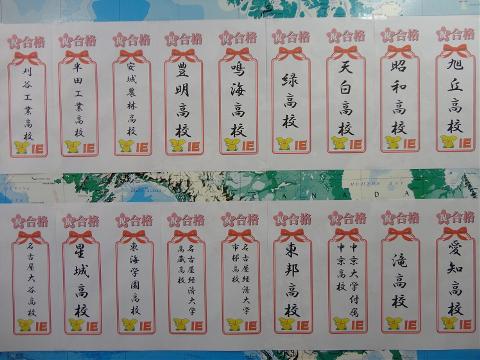 合格
旭丘高校
IE
合格
昭和高校
IE
合格
天白高校
IE
合格
緑高校
IE
合格
鳴海高校
IE
合格
豊明高校
IE
合格
安城農林高校
IE
合格
半田工業高校
IE
合格
刈谷工業高校
IE
合格
愛知高校
IE
合格
滝高校
IE
合格
中京大学付属
中京高校
IE
合格
東邦高校
IE
合格
名古屋経済大学
市邨高校
IE
合格
名古屋経済大学
高蔵高校
IE
合格
東海学園高校
IE
合格
星城高校
IE
合格
名古屋大谷高校
IE